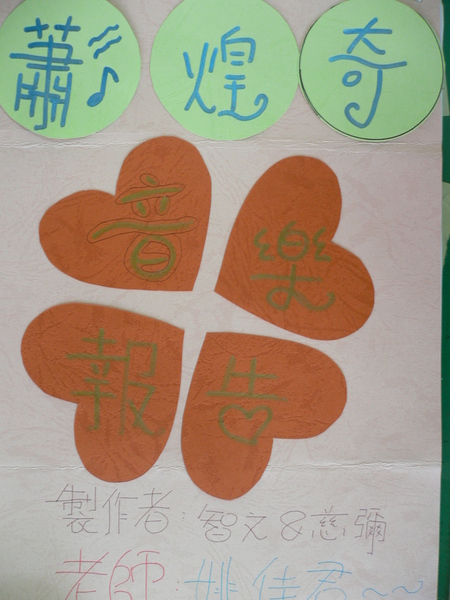 蕭煌奇
音樂
報告
製作者：智文&慈彌
老師：姚佳君～～